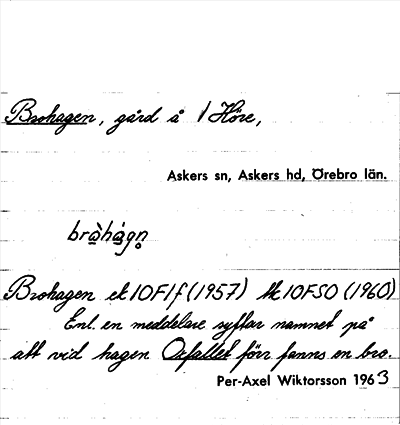 Brohagen, gård å 1 Höre,
Askers sn, Askers hd, Örebro län.
bràhágn̥
Brohagen ek 10F1f (1957) tk 10F SO (1960)
Enl. en meddelare syftar namnet på
att vid hagen Oxfallet förr fanns en bro.
Per-Axel Wiktorsson 1963